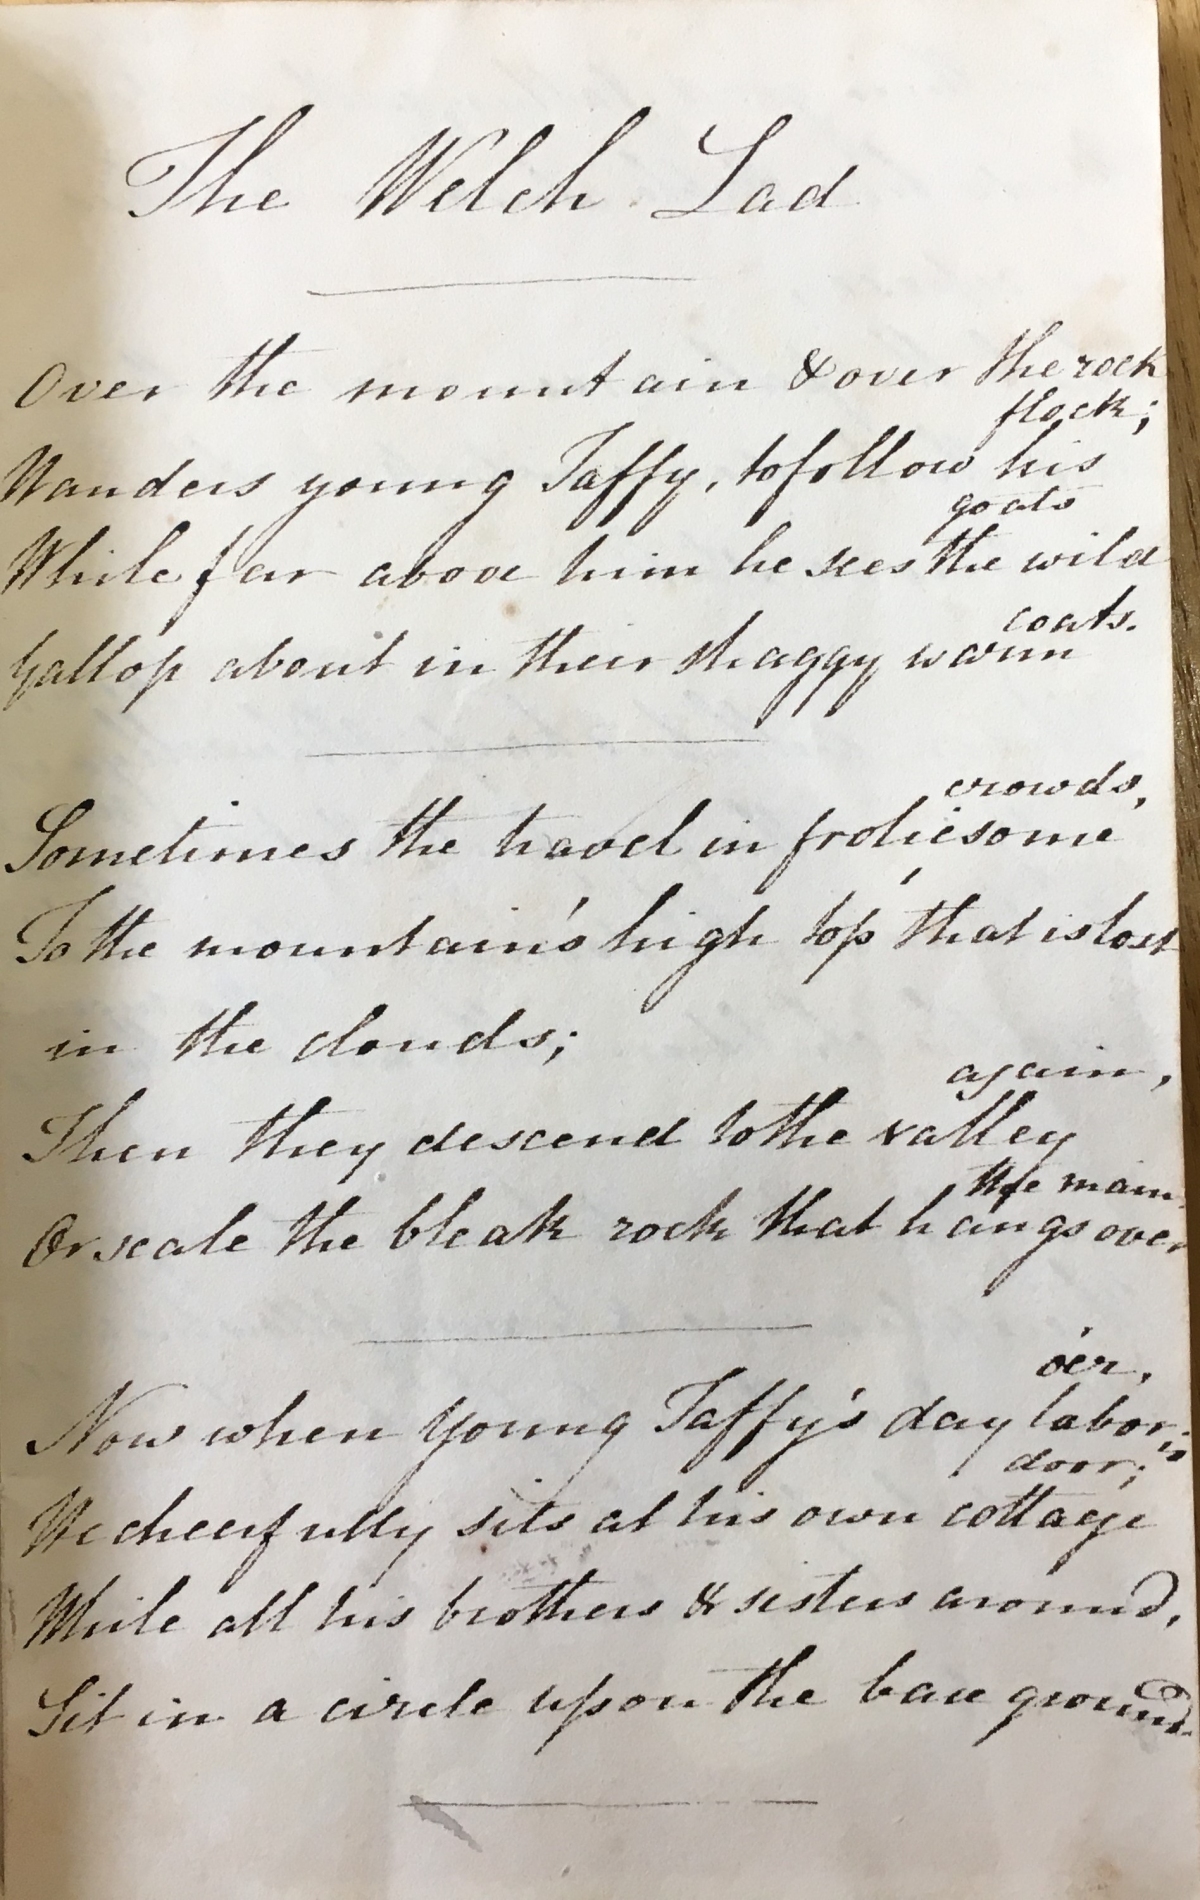 The Welch Lad
Over the mountain & over the rock
Wanders young Taffy, to follow his
flock;
While far above him he sees the wild
goats
Gallop about in their shaggy warm
coats.
Sometimes the travel in frolicsome
crowds,
To the mountain's high top that is lost
in the clouds;
Then they descend to the valley
again,
Or scale the bleak rock that hangs over
the main
Now when young Taffy's day labor is
o'er,
He cheerfully sits at his own cottage
door;
While all his brothers & sisters around,
Sit in a circle upon the bare ground.